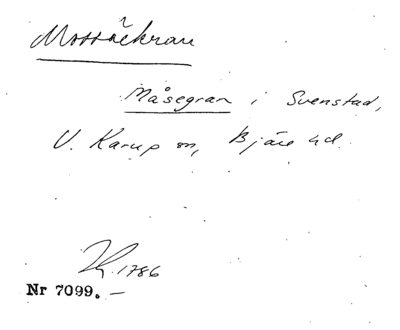 Mossåekran
Måsegran i Svenstad,
V. Karup sn, Bjäre hd.
1786
Nr 7099. —